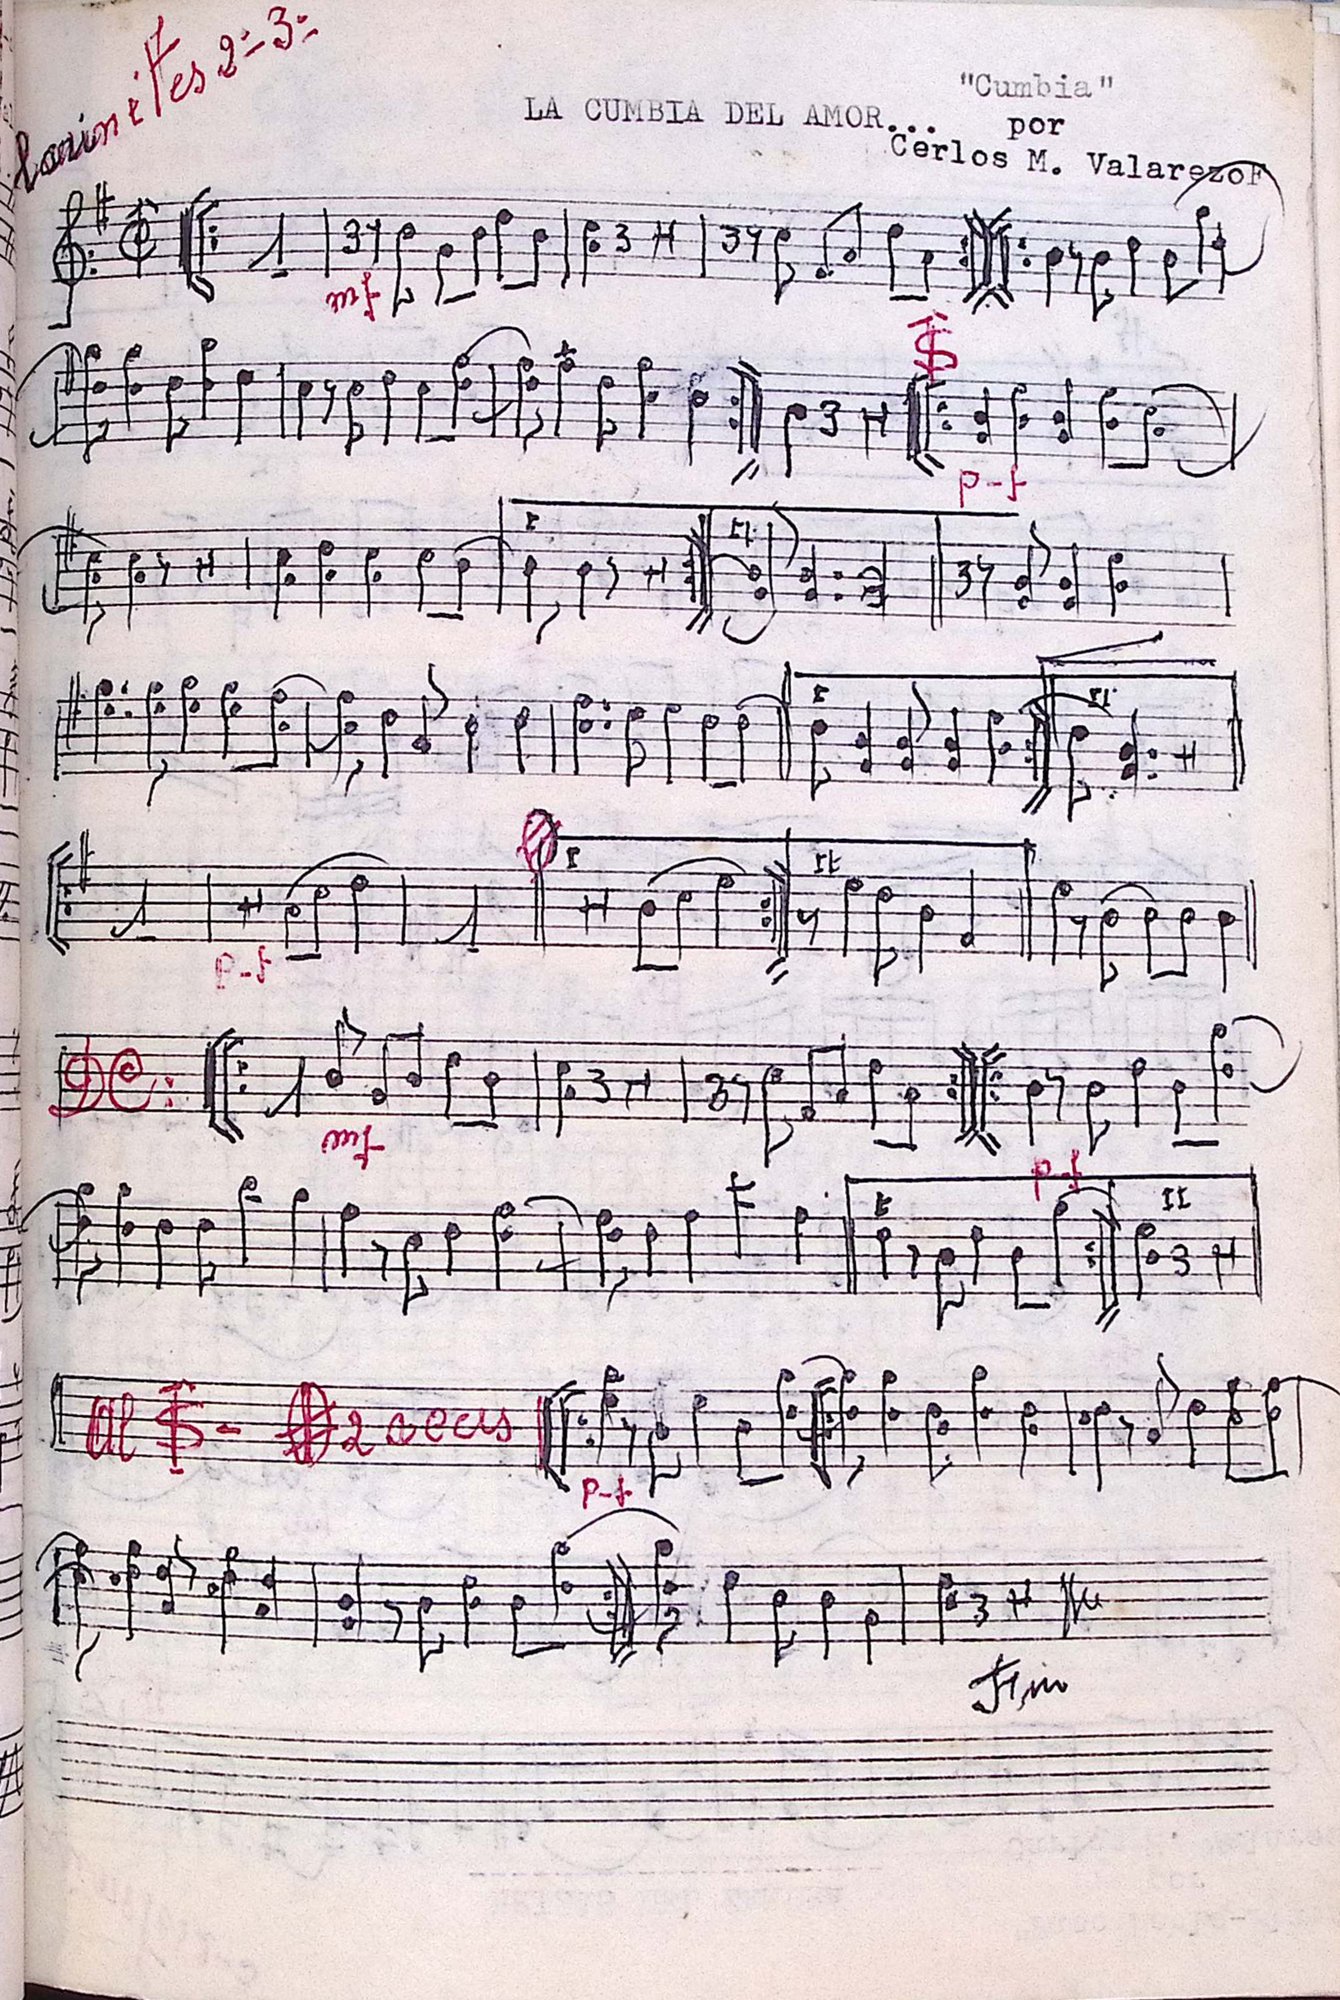 Clarinetes 2:-3:-
"Cumbia"
LA CUMBIA DEL AMOR...
por
Cerlos M. ValarezoF
mf
p-f
I
II
I
II
I
II
p-f
DC:
mf
p-f
I
II
Al $ - 2 veces
p-f
Fin